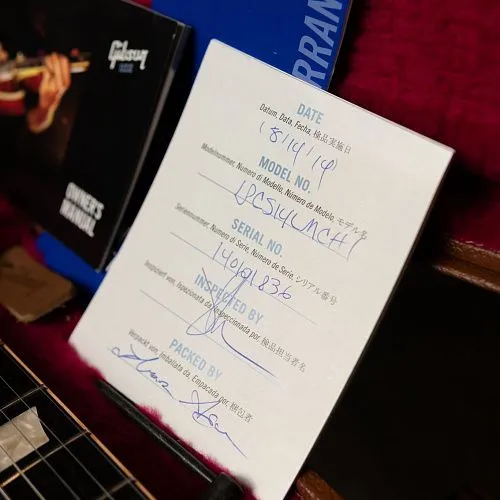 Gibson
OWNER'S
MANUAL
WARRAN
DATE
Datum, Data, Fecha, 検品実施日
18/4/14
MODEL NO.
Modelnummer, Numero di Modello, Número de Modelo, モデル名
LPCS14LMCH1
SERIAL NO.
Seriennummer, Numero di Serie, Número de Serie, シリアル番号
140101836
INSPECTED BY
Inspiziert von, Ispezionata da, Inspeccionada por, 検品担当者名
PACKED BY
Verpackt von, Imballata da, Empacada por, 梱包者